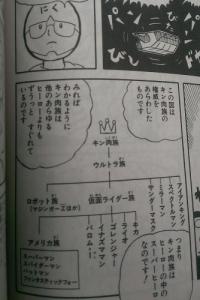 にく
この図は
キン肉族の
権威を
あらわした
ものです
みれば
わかるように
キン肉族は
他のあらゆる
ヒーローよりも
ずうっと すぐれて
いるのです
キン肉族
ウルトラ族
アイアンキング
スペクトルマン
ミラーマン
サンダーマスク
仮面ライダー族
ロボット族
(マジンガーZほか)
キカ
ライオ
ゴレンジャー
イナズマン
バロム・1
アメリカ族
スーパーマン
スパイダーマン
バットマン
ファンタスティックフォー
つまり
キン肉族は
ヒーローの中の
スーパーヒーロー
なのです!